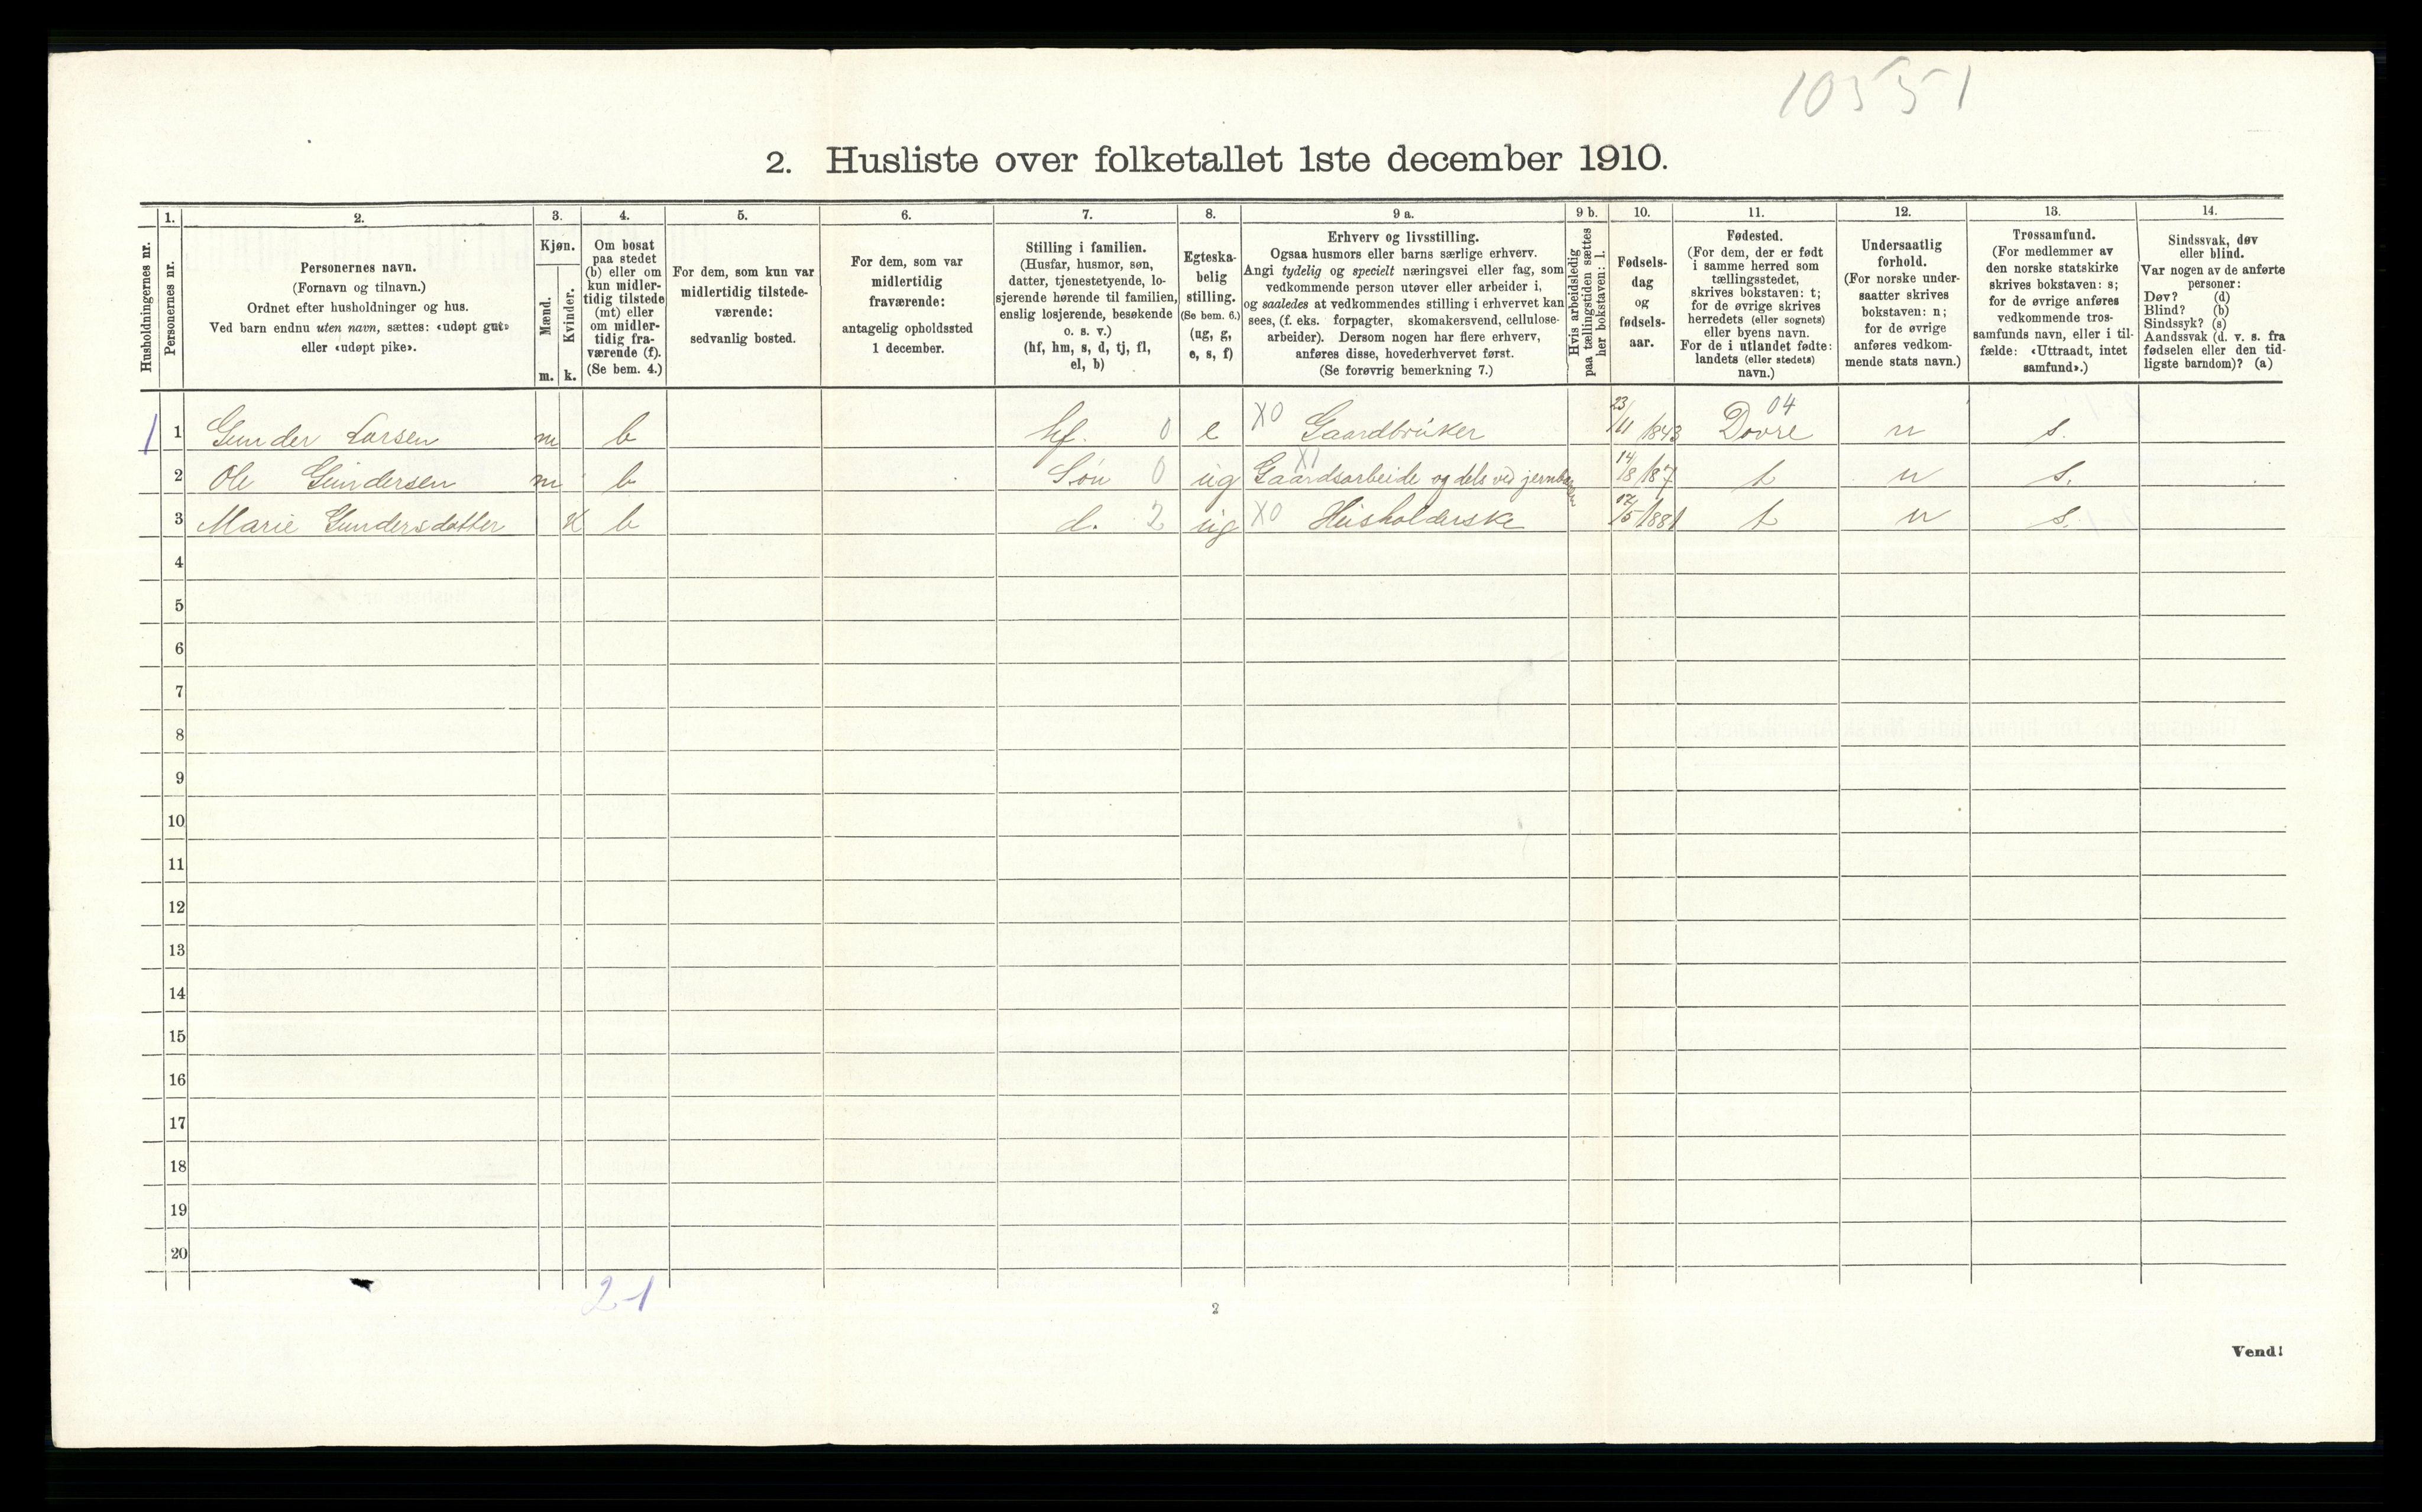 10551
2. Husliste over folketallet 1ste december 1910.
Husholdningernes nr.
1.
Personernes nr.
2.
Personernes navn.
(Fornavn og tilnavn.)
Ordnet efter husholdninger og hus.
Ved barn endnu uten navn, sættes: «udøpt gut»
eller «udøpt pike».
3.
Kjøn.
Mænd.
Kvinder.
m. k.
4.
Om bosat
paa stedet
(b) eller om
kun midler-
tidig tilstede
(mt) eller
om midler-
tidig fra-
værende (f).
(Se bem. 4.)
5.
For dem, som kun var
midlertidig tilstede-
værende:
sedvanlig bosted.
6.
For dem, som var
midlertidig
fraværende:
antagelig opholdssted
1 december.
7.
Stilling i familien.
(Husfar, husmor, søn,
datter, tjenestetyende, lo-
sjerende hørende til familien,
enslig losjerende, besøkende
o. s. v.)
(hf, hm, s, d, tj, fl,
el, b)
8.
Egteska-
belig
stilling.
(Se bem. 6.)
(ug, g,
e, s, f)
9 a.
Erhverv og livsstilling.
Ogsaa husmors eller barns særlige erhverv.
Angi tydelig og specielt næringsvei eller fag, som
vedkommende person utøver eller arbeider i,
og saaledes at vedkommendes stilling i erhvervet kan
sees, (f. eks. forpagter, skomakersvend, cellulose-
arbeider). Dersom nogen har flere erhverv,
anføres disse, hovederhvervet først.
(Se forøvrig bemerkning 7.)
9 b.
Hvis arbeidsledig
paa tællingstiden sættes
her bokstaven: l.
10.
Fødsels-
dag
og
fødsels-
aar.
11.
Fødested.
(For dem, der er født
i samme herred som
tællingsstedet,
skrives bokstaven: t;
for de øvrige skrives
herredets (eller sognets)
eller byens navn.
For de i utlandet fødte:
landets (eller stedets)
navn.)
12.
Undersaatlig
forhold.
(For norske under-
saatter skrives
bokstaven: n;
for de øvrige
anføres vedkom-
mende stats navn.)
13.
Trossamfund.
(For medlemmer av
den norske statskirke
skrives bokstaven: s;
for de øvrige anføres
vedkommende tros-
samfunds navn, eller i til-
fælde: «Uttraadt, intet
samfund».)
14.
Sindssvak, døv
eller blind.
Var nogen av de anførte
personer:
Døv? (d)
Blind? (b)
Sindssyk? (s)
Aandssvak (d. v. s. fra
fødselen eller den tid-
ligste barndom)? (a)
1 1 Gunder Larsen m b hf. 0 e X0 Gaardbruker 23/11 1843 Dovre 04 n s.
2 Ole Gundersen m b Søn 0 ug X1 Gaardsarbeide og dels ved jernbanen 14/8 187 t n s.
3 Marie Gundersdatter K b d. 2 ug X0 Husholderske /5 1881 t n s.
4
5
6
7
8
9
10
11
12
13
14
15
16
17
18
19
20
2-1
2
Vend!